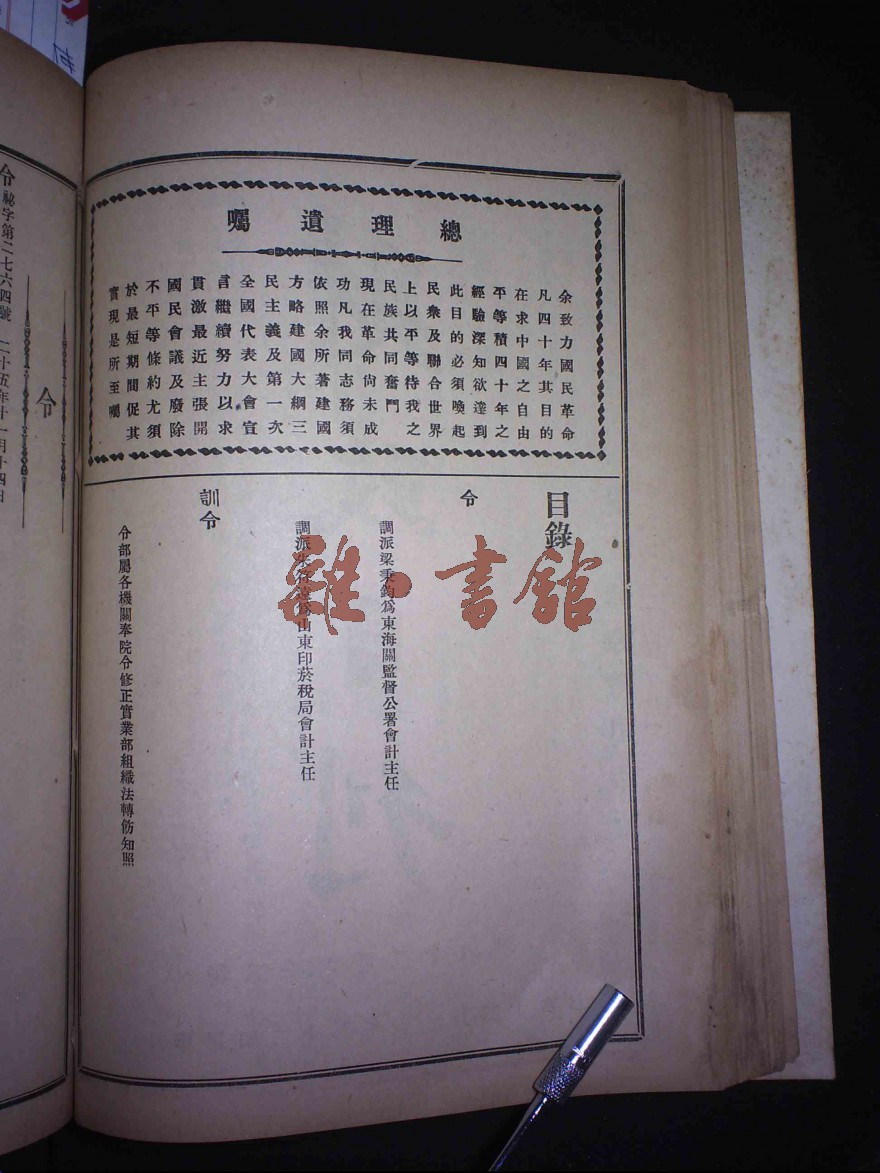 總理遺囑
余致力國民革命
凡四十年其目的
在求中國之自由
平等積四十年之
經驗深知欲達到
此目的必須喚起
民衆及聯合世界
上以平等待我之
民族共同奮鬥
現在革命尚未成
功凡我同志務須
依照余所著建國
方略建國大綱三
民主義及第一次
全國代表大會宣
言繼續努力以求
貫澈最近主張開
國民會議及廢除
不平等條約尤須
於最短期間促其
實現是所至囑
目錄
令
調派梁秉鈞爲東海關監督公署會計主任
調派爲山東印菸稅局會計主任
訓令
令部屬各機關奉院令修正實業部組織法轉飭知照
令
令 祕字第二七六四號 二十五年十一月十四日
雜·書館